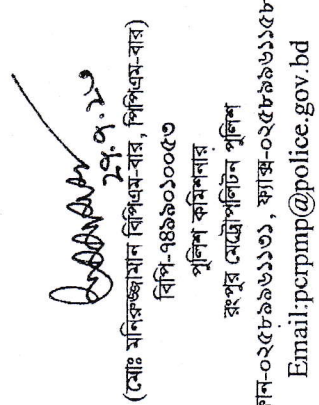 ২৭.৭.২৩
(মোঃ মনিরুজ্জামান বিপিএম-বার, পিপিএম-বার)
বিপি-৭৪৯৯০১০০৫৩
পুলিশ কমিশনার
রংপুর মেট্রোপলিটন পুলিশ
ফোন-০২৫৮৯৯৬১১৩১, ফ্যাক্স-০২৫৮৯৯৬১১৫৮
Email:pcrpmp@police.gov.bd